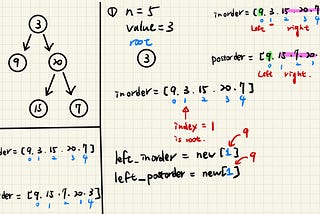 3
9
20
15
7
der = [9, 3, 15, 20, 7]
0 1 2 3 4
der = [9, 15, 7, 20, 3]
0 1 2 3 4
① n = 5
value = 3
root
3
inorder = [9, 3, 15, 20, 7]
0 1 2 3 4
index = 1
is root.
9
left_inorder = new [1]
9
left_postorder = new[1]
inorder = [9, 3, 15, 20, 7
0 1 2 3 4
left right
postorder = [9, 15, 7, 20,
0 1 2 3
Left right.